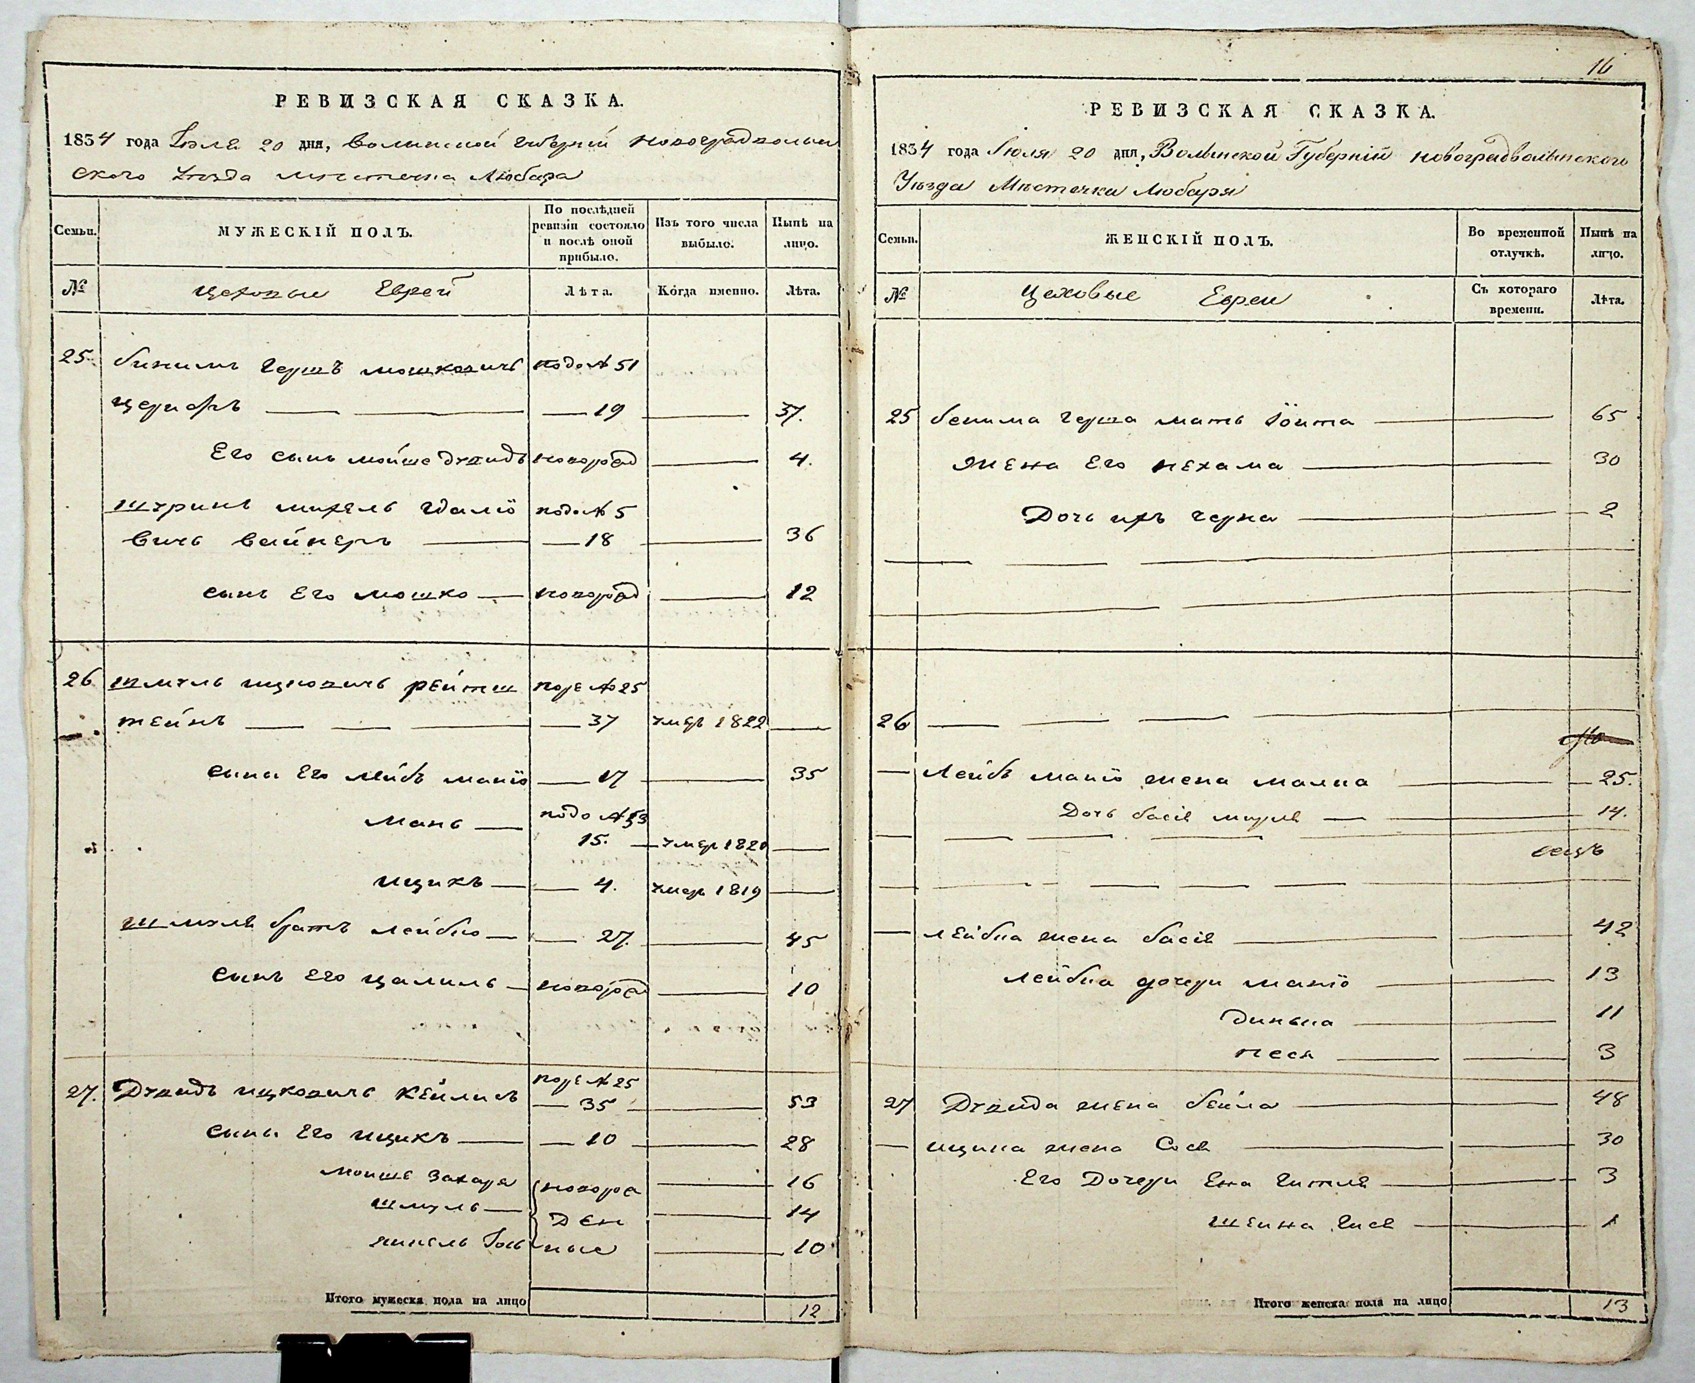 РЕВИЗСКАЯ СКАЗКА.
1834 года Іюля 20 дня, Волынской Губерніи Новоградволын
ского Уезда местечка Любара
Семьи.
МУЖЕСКІЙ ПОЛЪ.
По послѣдней ревизіи состояло и послѣ оной прибыло.
Изъ того числа выбыло.
Нынѣ на лицо.
№
Цеховые Евреи
Лѣта.
Когда именно.
Лѣта.
25. Беним Герш Мошкович подо № 51
— 19 — 37.
Его сын Мойше Дувидъ новород — 4.
Шурин Михель Гдалио подо № 5
вичь Вайнер — 18 — 36
сын Его Мошко — новород — 12
26 Шмуль Ицкович Рейтш под № 25
тейнъ — — — 37 умер 1822 —
сыны Его Лейбъ Манио — 17 — 35
Мань — подо № 53
15. — умер 1820 —
Ицикъ — — 4. умер 1819 —
Шмуля братъ Лейбко — — 27. — 45
сынъ Его Цалиль — новород — 10
27. Дувидъ Ицкович Кейлисъ под № 25
— 35 — 53
сыны Его Ицикъ — — 10 — 28
Мойше Захаря новоро — 16
Шмуль — ден — 14
ные — 10
Итого мужеска пола на лицо 12
16
РЕВИЗСКАЯ СКАЗКА.
1834 года Іюля 20 дня, Волынской Губерніи Новоградволынского
Уѣзда Мѣстечка Любара
Семьи.
ЖЕНСКІЙ ПОЛЪ.
Во временной отлучкѣ.
Нынѣ на лицо.
№
Цеховые Евреи
Съ котораго времени.
Лѣта.
25 Бенима Герша мать Іойта — 65
жена Его Нехама — 30
Дочь ихъ Черна — 2
26 — — — —
— Лейбъ Манио жена Малка — 25.
Дочь Бася — 14.
— Лейбка жена Бася — 42
Лейбка дочери Манио — 13
Динька — 11
Песя — 3
27 Дувида жена Бейла — 48
— Ицика жена Сося — 30
Его Дочери Ена Гитля — 3
Шейна — 1
Итого женска пола на лицо 13